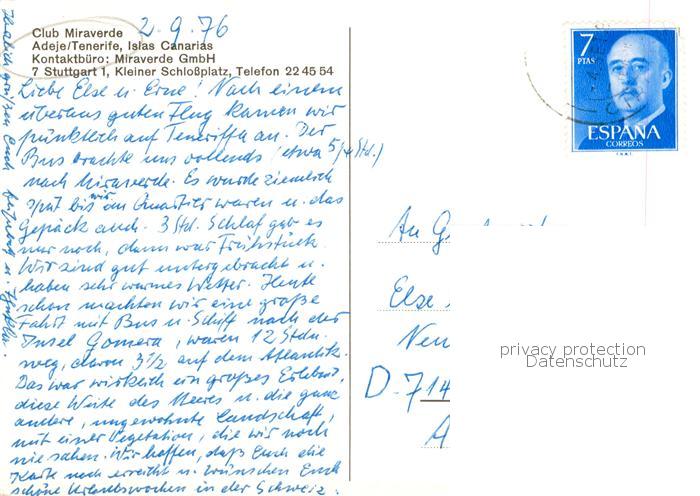 2.9.76
Club Miraverde
Adeje/Tenerife, Islas Canarias
Kontaktbüro: Miraverde GmbH
7 Stuttgart 1, Kleiner Schloßplatz, Telefon 22 45 54
Liebe Else u. Erne! Nach einem
überaus guten Flug kamen wir
pünktlich auf Teneriffa an. Der
Bus brachte uns vollends (etwa 5/4 Std.)
nach Miraverde. Es wurde ziemlich
spät bis wir im Quartier waren u. das
Gepäck auch. 3 Std. Schlaf gab es
nur noch, dann war Frühstück.
Wir sind gut untergebracht u.
haben sehr warmes Wetter. Heute
schon machten wir eine große
Fahrt mit Bus u. Schiff nach der
Insel Gomera, waren 12 Stdn.
weg, davon 3 1/2 auf dem Atlantik.
Das war wirklich ein großes Erlebnis,
diese Weite des Meeres u. die ganz
andere, ungewohnte Landschaft,
mit einer Vegetation, die wir noch
nie sahen. Wir hoffen, daß Euch die
Karte noch erreicht u. wünschen Euch
schöne Urlaubswochen in der Schweiz.
Herzlich grüßen Euch u.
7
PTAS
ESPAÑA
CORREOS
An
Else
D-714
privacy protection
Datenschutz